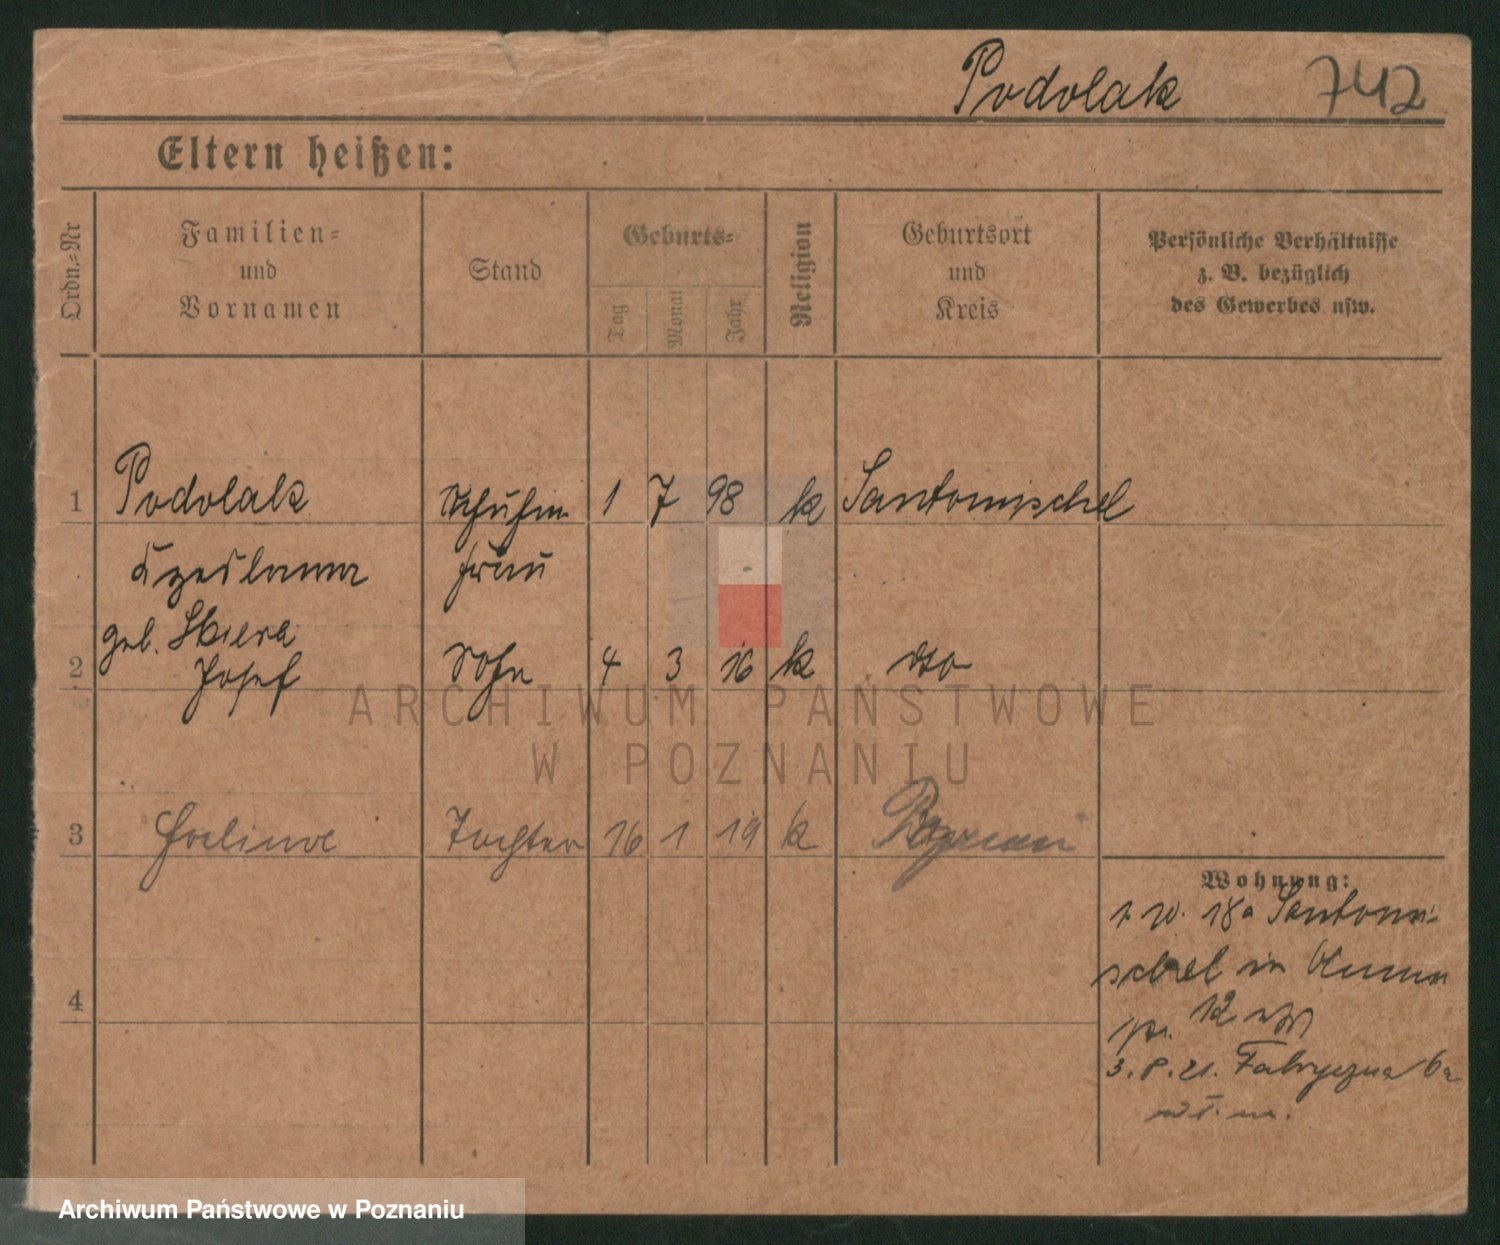 Podolak 742
Eltern heißen:
Ordn.-Nr
Familien-
und
Vornamen
Stand
Geburts-
Tag
Monat
Jahr
Religion
Geburtsort
und
Kreis
Persönliche Verhältnisse
z. B. bezüglich
des Gewerbes usw.
1 Podolak 1 7 98 k Santomischel
Czeslawa frau
geb. Skiera
2 Josef Sohn 4 3 16 k dto
ARCHIWUM PAŃSTWOWE
W POZNANIU
3 Halina Tochter 16 1 19 k
Wohnung:
18a Santomi-
schel in
4
12
3. 8. 21. Fabryczna 6a
Archiwum Państwowe w Poznaniu